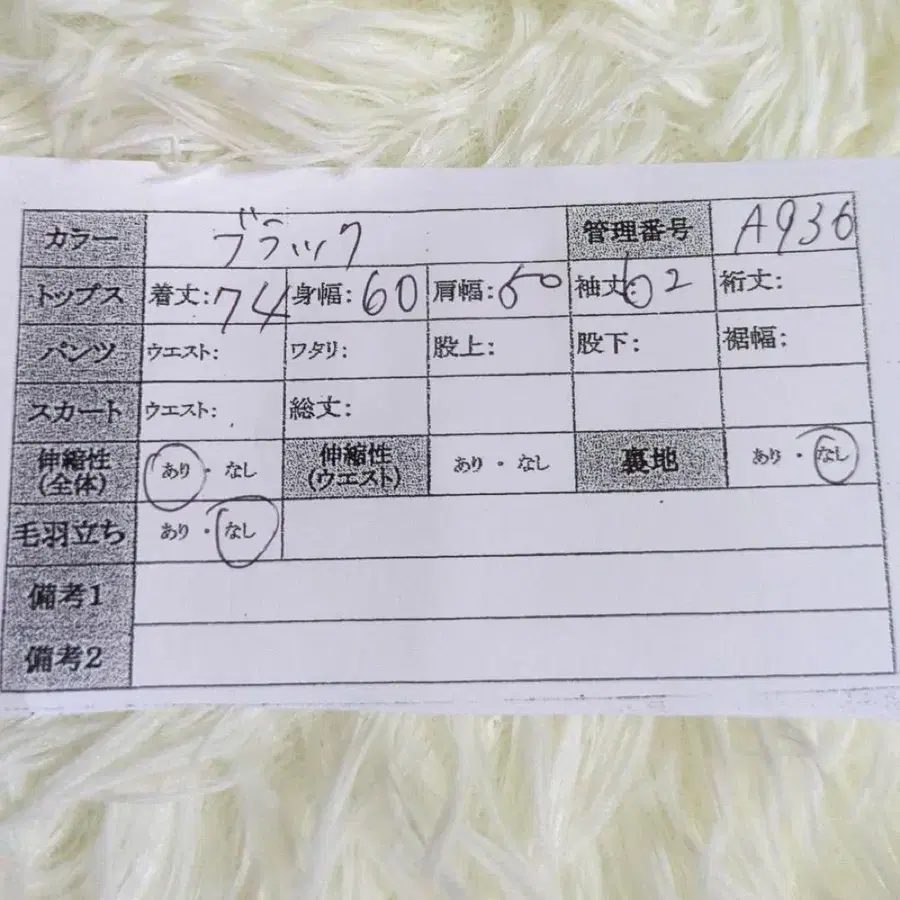 カラー ブラック 管理番号 A936
トップス 着丈:74 身幅:60 肩幅:50 袖丈:62 裄丈:
パンツ ウエスト: ワタリ: 股上: 股下: 裾幅:
スカート ウエスト: 総丈:
伸縮性(全体) あり・なし 伸縮性(ウエスト) あり・なし 裏地 あり・なし
毛羽立ち あり・なし
備考1
備考2